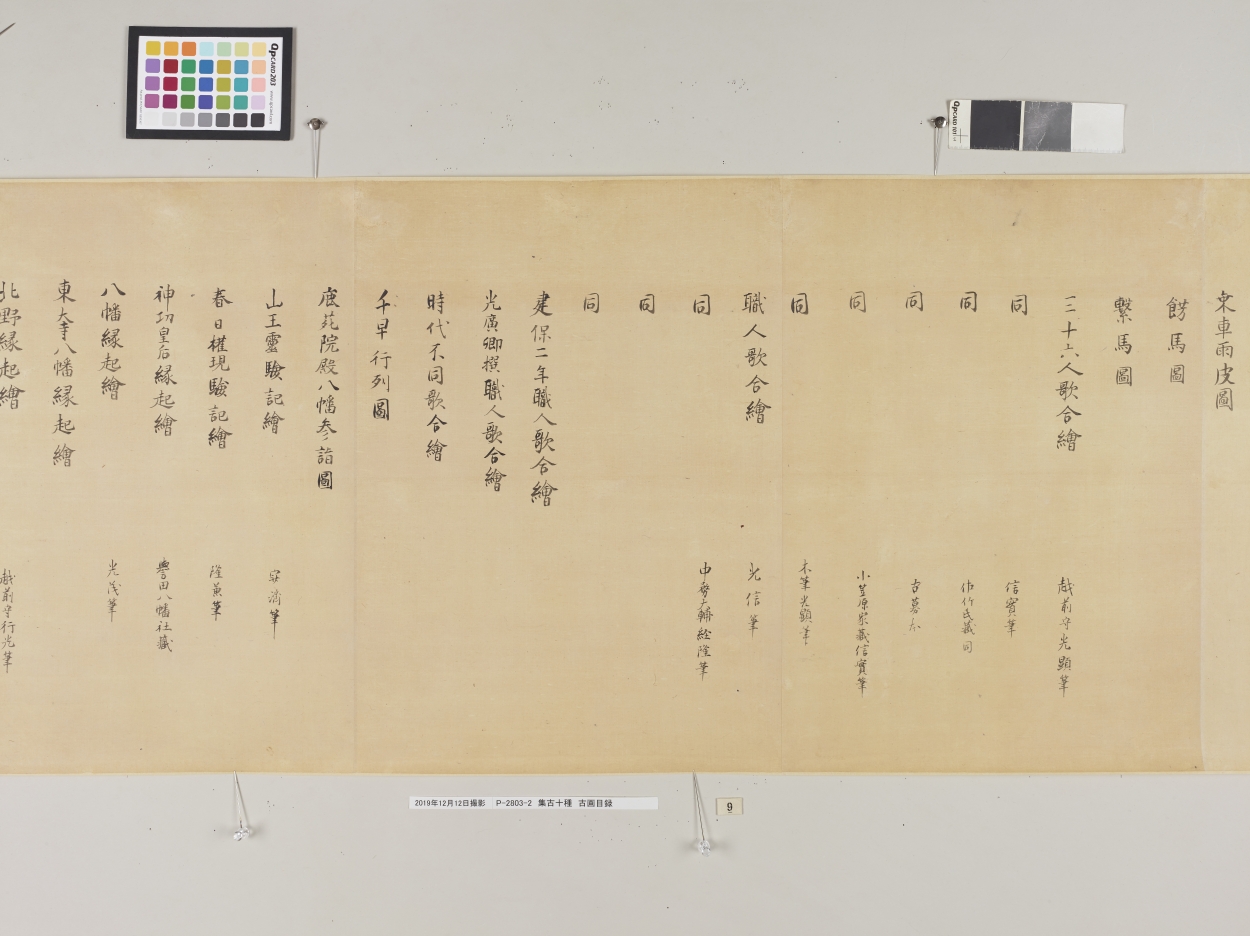 車雨皮圖
餝馬圖
繋馬圖
三十六人歌合繪 越前守光顯筆
同 信實筆
同 佐竹氏藏 同
同 古摹本
同 小笠原家藏信實筆
同 木筆光顯筆
職人歌合繪 光信筆
同 中務大輔経隆筆
同
同
建保二年職人歌合繪
光廣卿撰職人歌合繪
時代不同歌合繪
千早行列圖
鹿苑院殿八幡参詣圖
山王靈驗記繪 筆
春日權現驗記繪 隆兼筆
神功皇后縁起繪 譽田八幡社藏
八幡縁起繪 光茂筆
東大寺八幡縁起繪
北野縁起繪 越前守行光筆
QPCARD 203
QPCARD 101
2019年12月12日撮影 P-2803-2 集古十種 古画目録
9